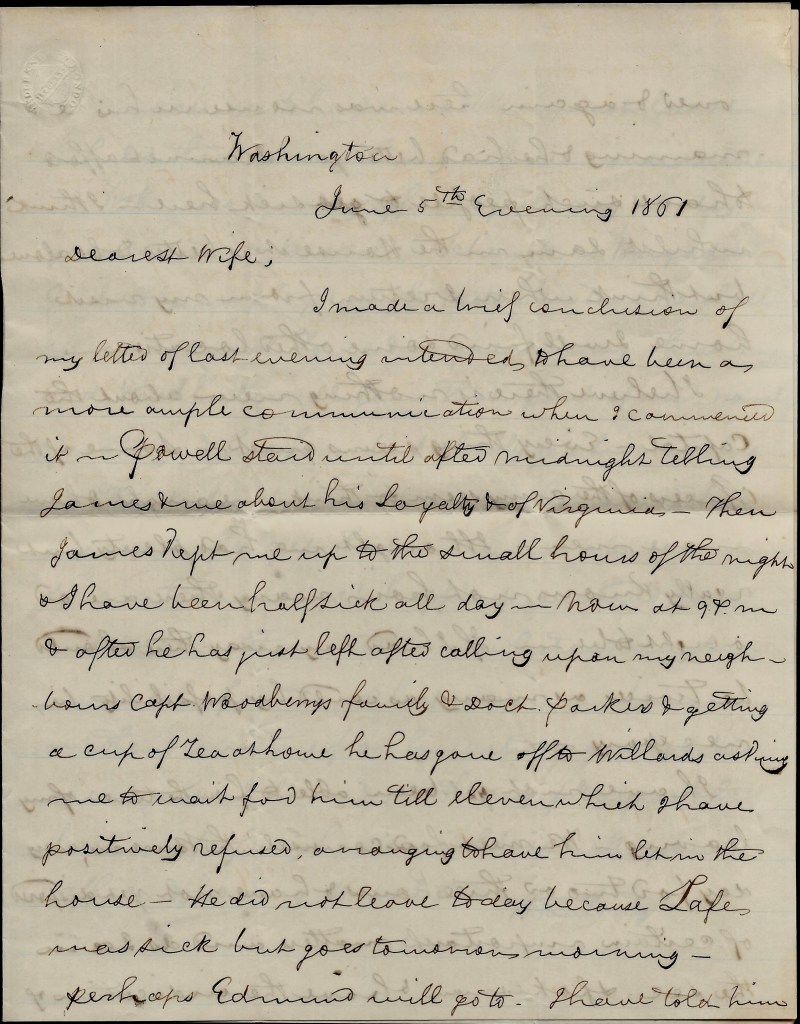 Washington
June 5th Evening 1861
Dearest Wife;
I made a brief conclusion of
my letter of last evening intended to have been a
more ample communication when I commenced
it — Powell staid until after midnight telling
James & me about his Loyalty & of Virginia — Then
James kept me up to the small hours of the night
& I have been half sick all day — Now at 9 P.m
& after he has just left after calling upon my neigh-
bours Capt. Woodberrys family & Doct. Parkers & getting
a cup of Tea at home he has gone off to Willards asking
me to wait for him till eleven which I have
positively refused, arranging to have him let in the
house — He did not leave to day because Lafe
was sick but goes tomorrow morning —
perhaps Edmund will go to. I have told him